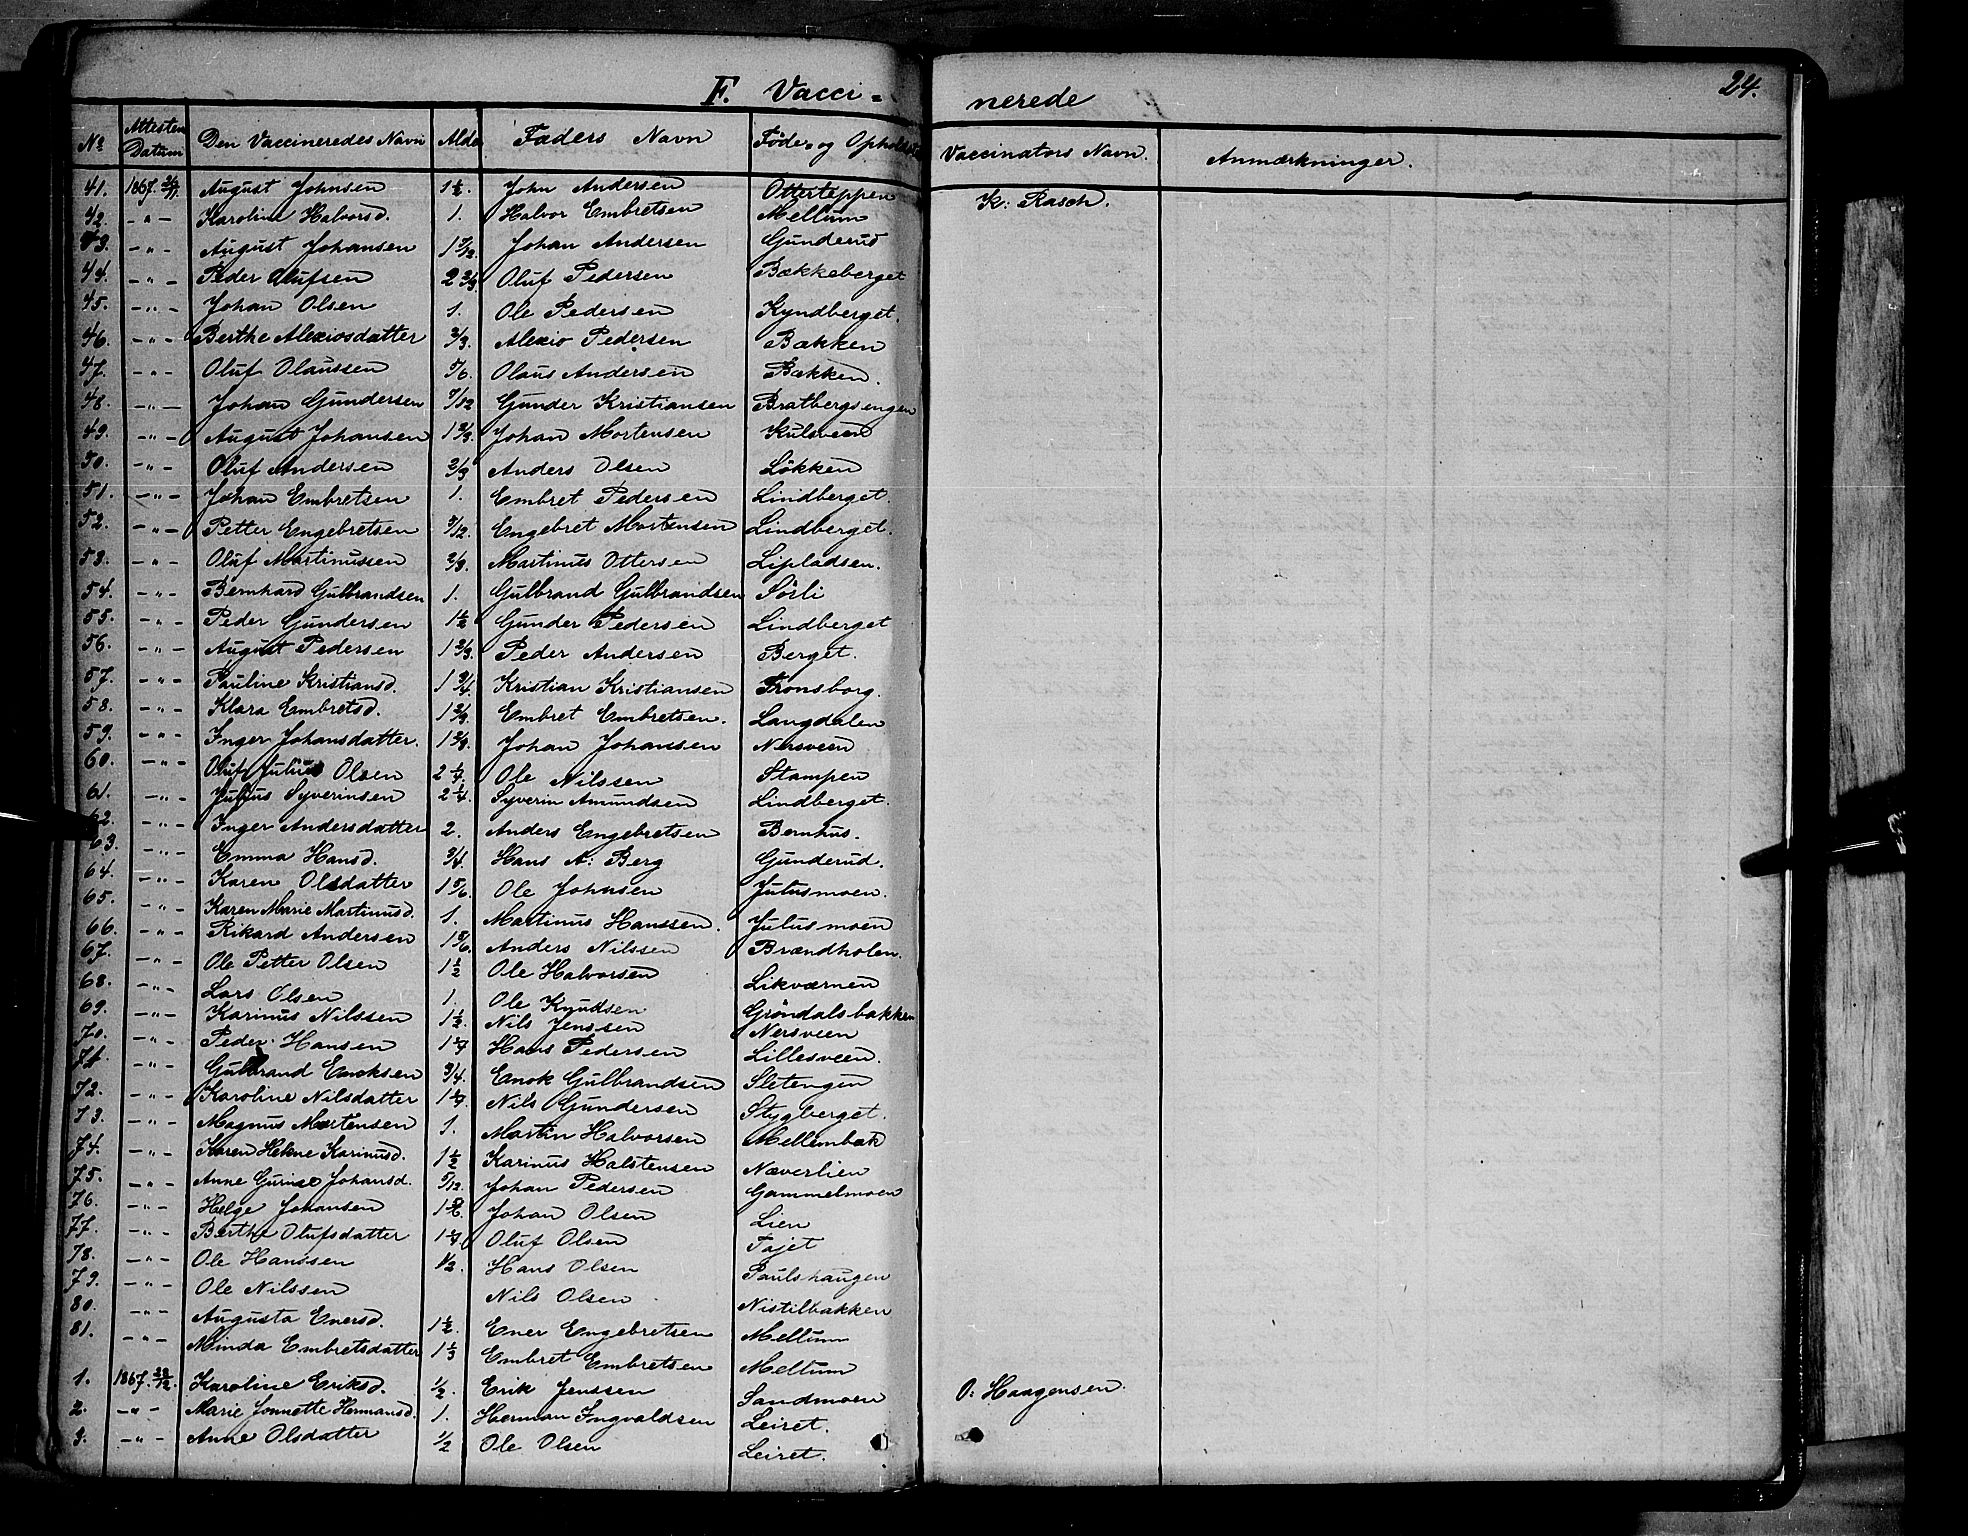 24.
F. Vacci=nerede
No Attesten Datum Den Vaccineredes Navn Alder Faders Navn Føde- og Opholdsst Vaccinators Navn. Anmærkninger.
41. 1867 August Johnsen 1 1/2. John Andersen Otterteppen K: Rasch.
42 -"- Karoline Halvorsd. 1. Halvor Embretsen Mellum
43. -"- August Johansen 1 7/12. Johan Andersen Gunderud
44. -"- Peder Olufsen 2 2/3 Oluf Pedersen Bækkeberget
45. -"- Johan Olsen 1. Ole Pedersen Kyndberget.
46. -"- Berthe Alexiosdatter 2/3. Alexio Pedersen Bakken
47. -"- Oluf Olaussen 5/6. Olaus Andersen Bakken.
48. -"- Johan Gundersen 7/12 Gunder Kristiansen Bratbergsengen
49. -"- August Johansen 1 2/3. Johan Mortensen Kulsveen
50. -"- Oluf Andersen 2/3 Anders Olsen Løkken
51. -"- Johan Embretsen 1. Embret Pedersen Lindberget.
52. -"- Petter Engebretsen 7/12. Engebret Mortensen Lindberget.
53. -"- Oluf Martinussen 2/3. Martinus Ottersen Lipladsen.
54. -"- Bernhard Gulbrandsen 1. Gulbrand Gulbrandsen Sørli
55. -"- Peder Gundersen 1 1/2 Gunder Pedersen Lindberget
56. -"- August Pedersen 1 2/3. Peder Andersen Berget.
57. -"- Pauline Kristiansd. 1 3/4. Kristian Kristiansen Tronsborg.
58. -"- Klara Embretsd. 1 2/3. Embret Embretsen. Langdalen
59. -"- Inger Johansdatter. 1 2/3. Johan Johansen Nersveen
60. -"- Oluf Julius Olsen 2 Ole Nilssen Stampen
61. -"- Julius Syverinsen 2 1/4. Syverin Amundsen Lindberget.
62. -"- Inger Andersdatter 2. Anders Engebretsen Bernhus.
63. -"- Emma Hansd. 3/4. Hans A: Berg Gunderud.
64. -"- Karen Olsdatter 1 5/6. Ole Johnsen Julusmoen.
65. -"- Karen Marie Martinusd. 1. Martinus Hanssen. Julusmoen
66. -"- Rikard Andersen 1 5/6. Anders Nilssen Brændholen.
67. -"- Ole Petter Olsen 1 1/2 Ole Halvorsen Likværnen
68. -"- Lars Olsen 1. Ole Knudsen Grøndalsbakken
69. -"- Karinus Nilssen 1 1/2. Nils Jenssen Nersveen
70. -"- Peder Hansen 1 Hans Pedersen Lillesveen.
71. -"- Gulbrand Enoksen 3/4. Enok Gulbrandsen Sletengen
72. -"- Karoline Nilsdatter 1 Nils Gundersen Stygberget.
73. -"- Magnus Martensen 1. Martin Halvorsen Mellembæk
74. -"- Karen Helene Karinusd. 1 1/2 Karinus Halstensen Næverlien
75. -"- Anne Gurine Johansd. 5/12. Johan Pedersen Gammelmoen
76. -"- Helge Johansen 1 Johan Olsen Lien
77. -"- Berthe Olufsdatter 1 Oluf Olsen Tajet
78. -"- Ole Hanssen 1/2. Hans Olsen Paulshaugen
79. -"- Ole Nilssen Nils Olsen Nistilbakken
80. -"- Augusta Enersd. 1 1/2. Ener Engebretsen Mellum
81. -"- Minda Embretsdatter 1 1/3 Embret Embretsen Mellum
1. 1867. Karoline Eriksd. 1/2. Erik Jenssen Sandmoen O: Haagensen.
2. -"- Marie Jonnette Hermansd. 1. Herman Ingvaldsen Leiret.
3. -"- Anne Olsdatter 1/2 Ole Olsen Leiret.